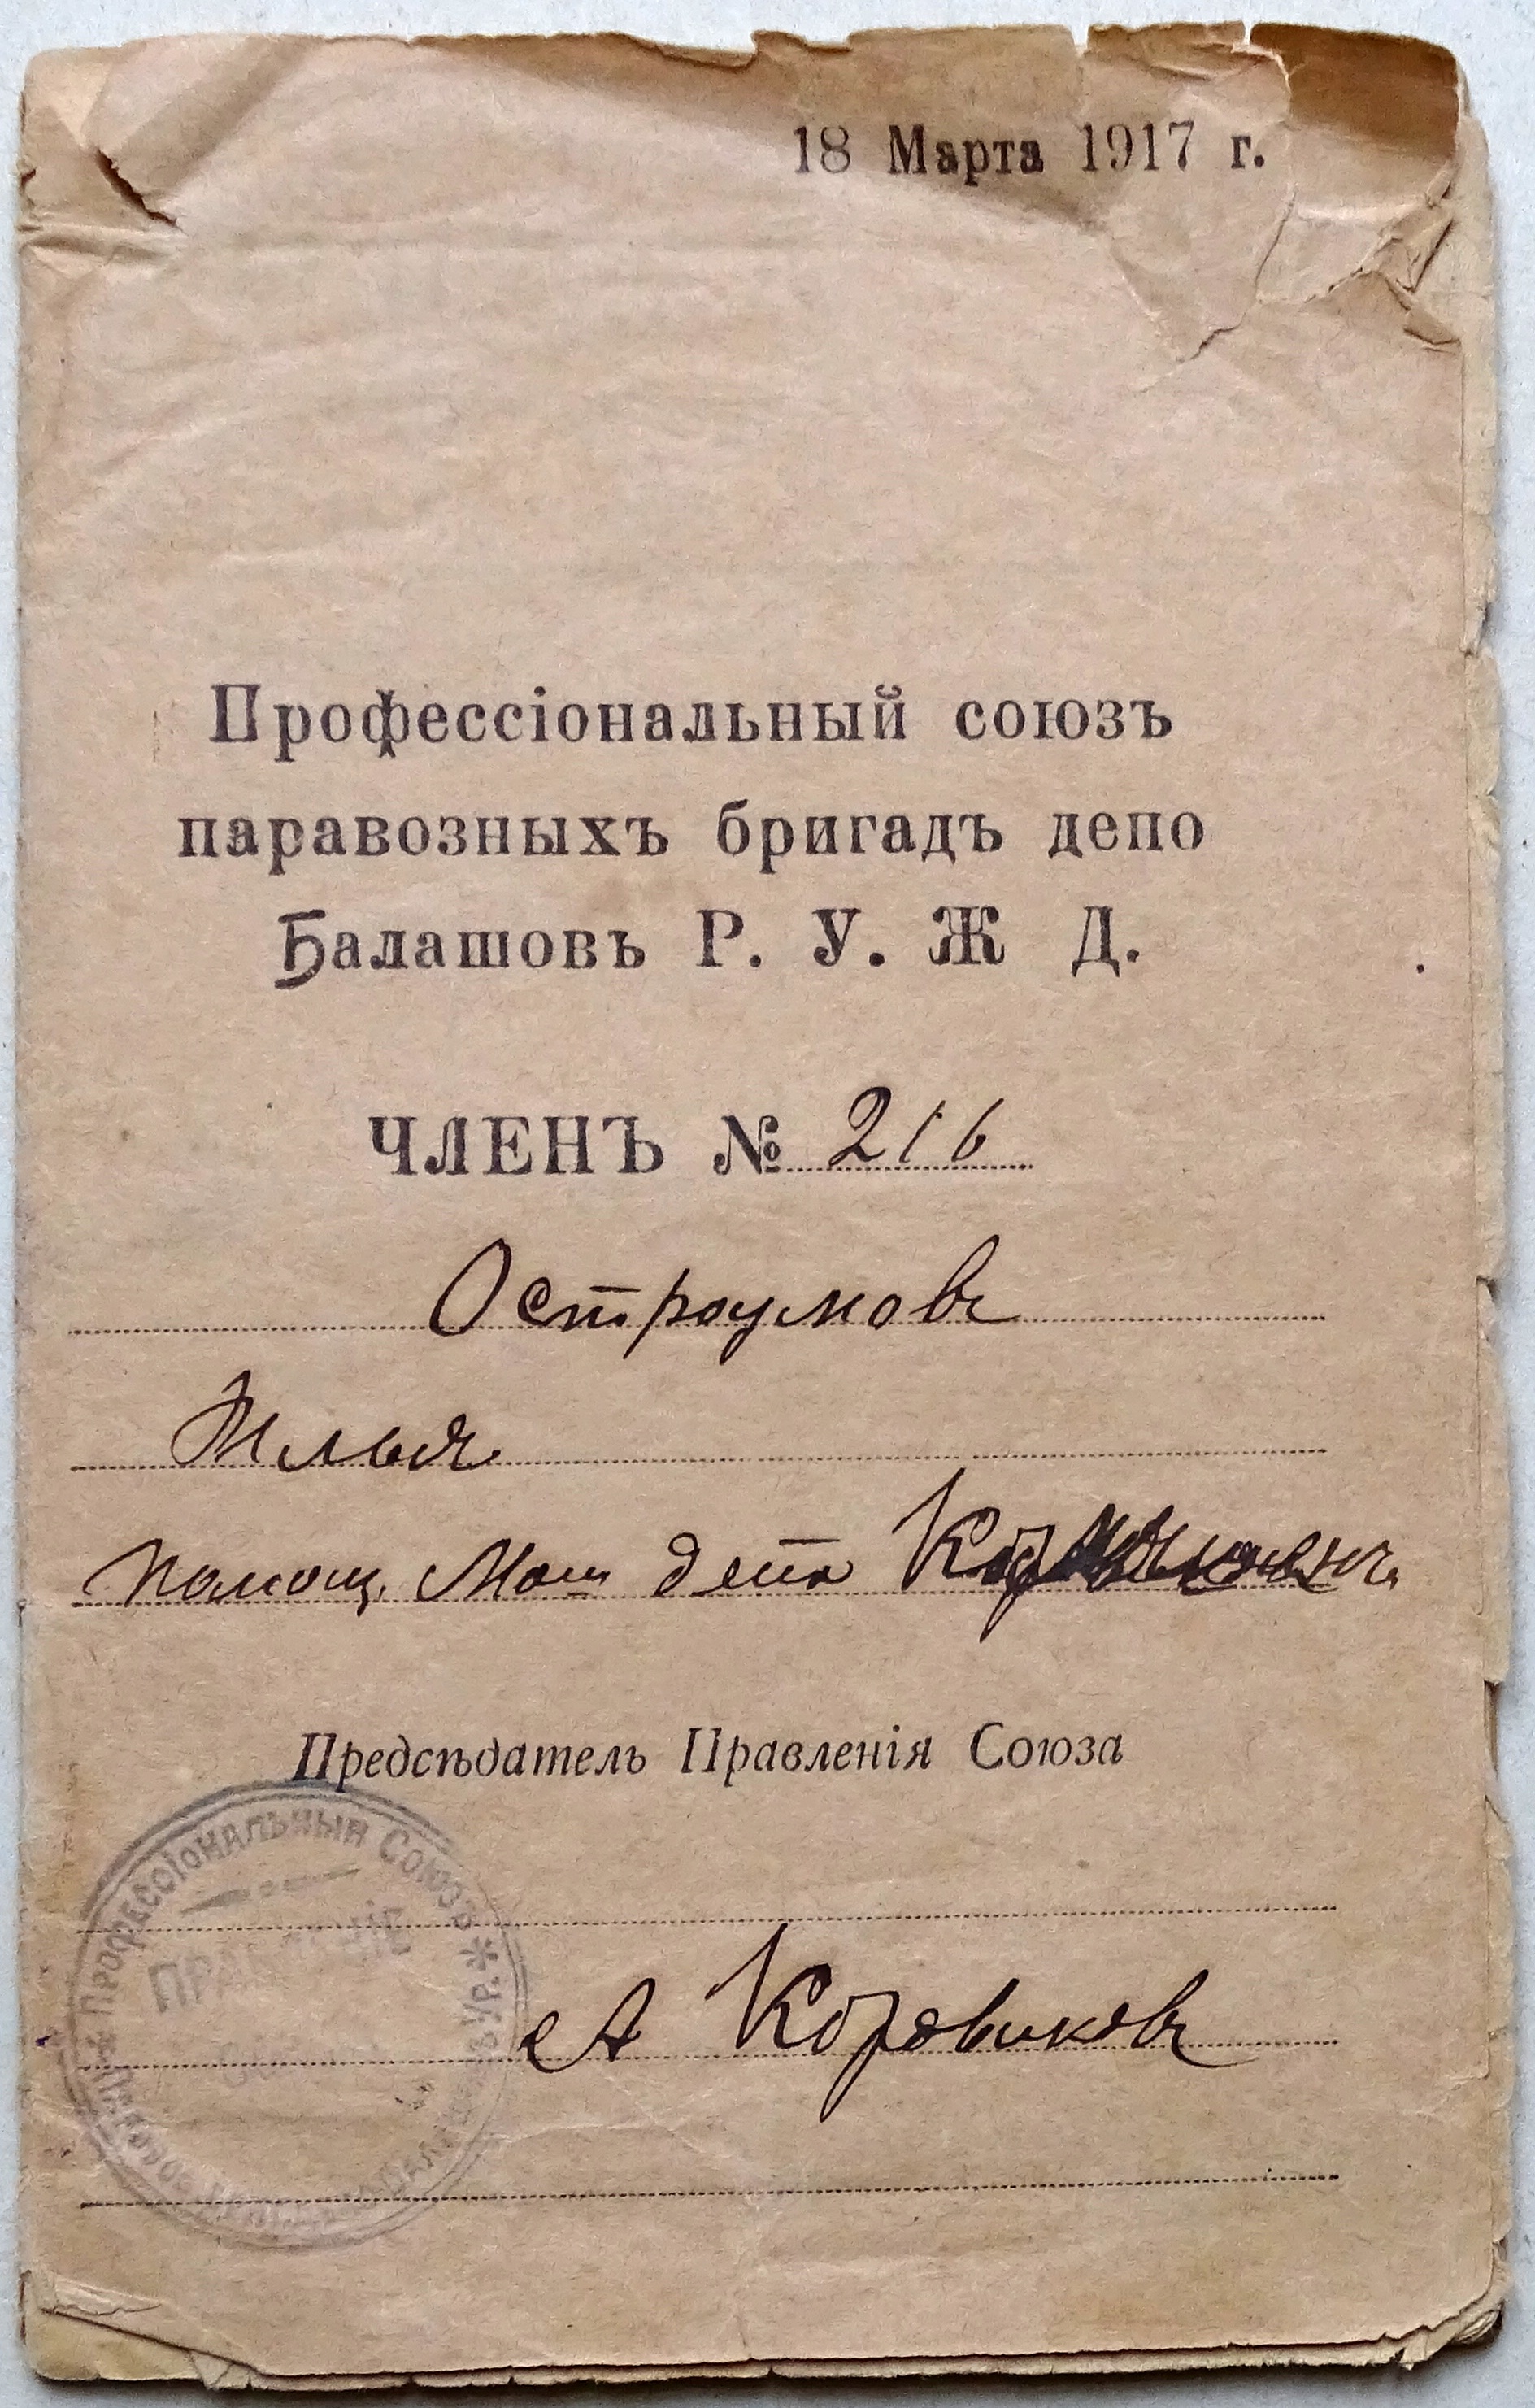 18 Марта 1917 г.
Профессіональный союзъ
паравозныхъ бригадъ депо
Балашовъ Р. У. Ж Д.
ЧЛЕНЪ № 216
Остроумовъ
Илья
помощ. Маш депо
Предсѣдатель Правленія Союза
Профессіональный Союзъ * Р.У.
ПРАВЛЕНІЕ
А Коровиковъ